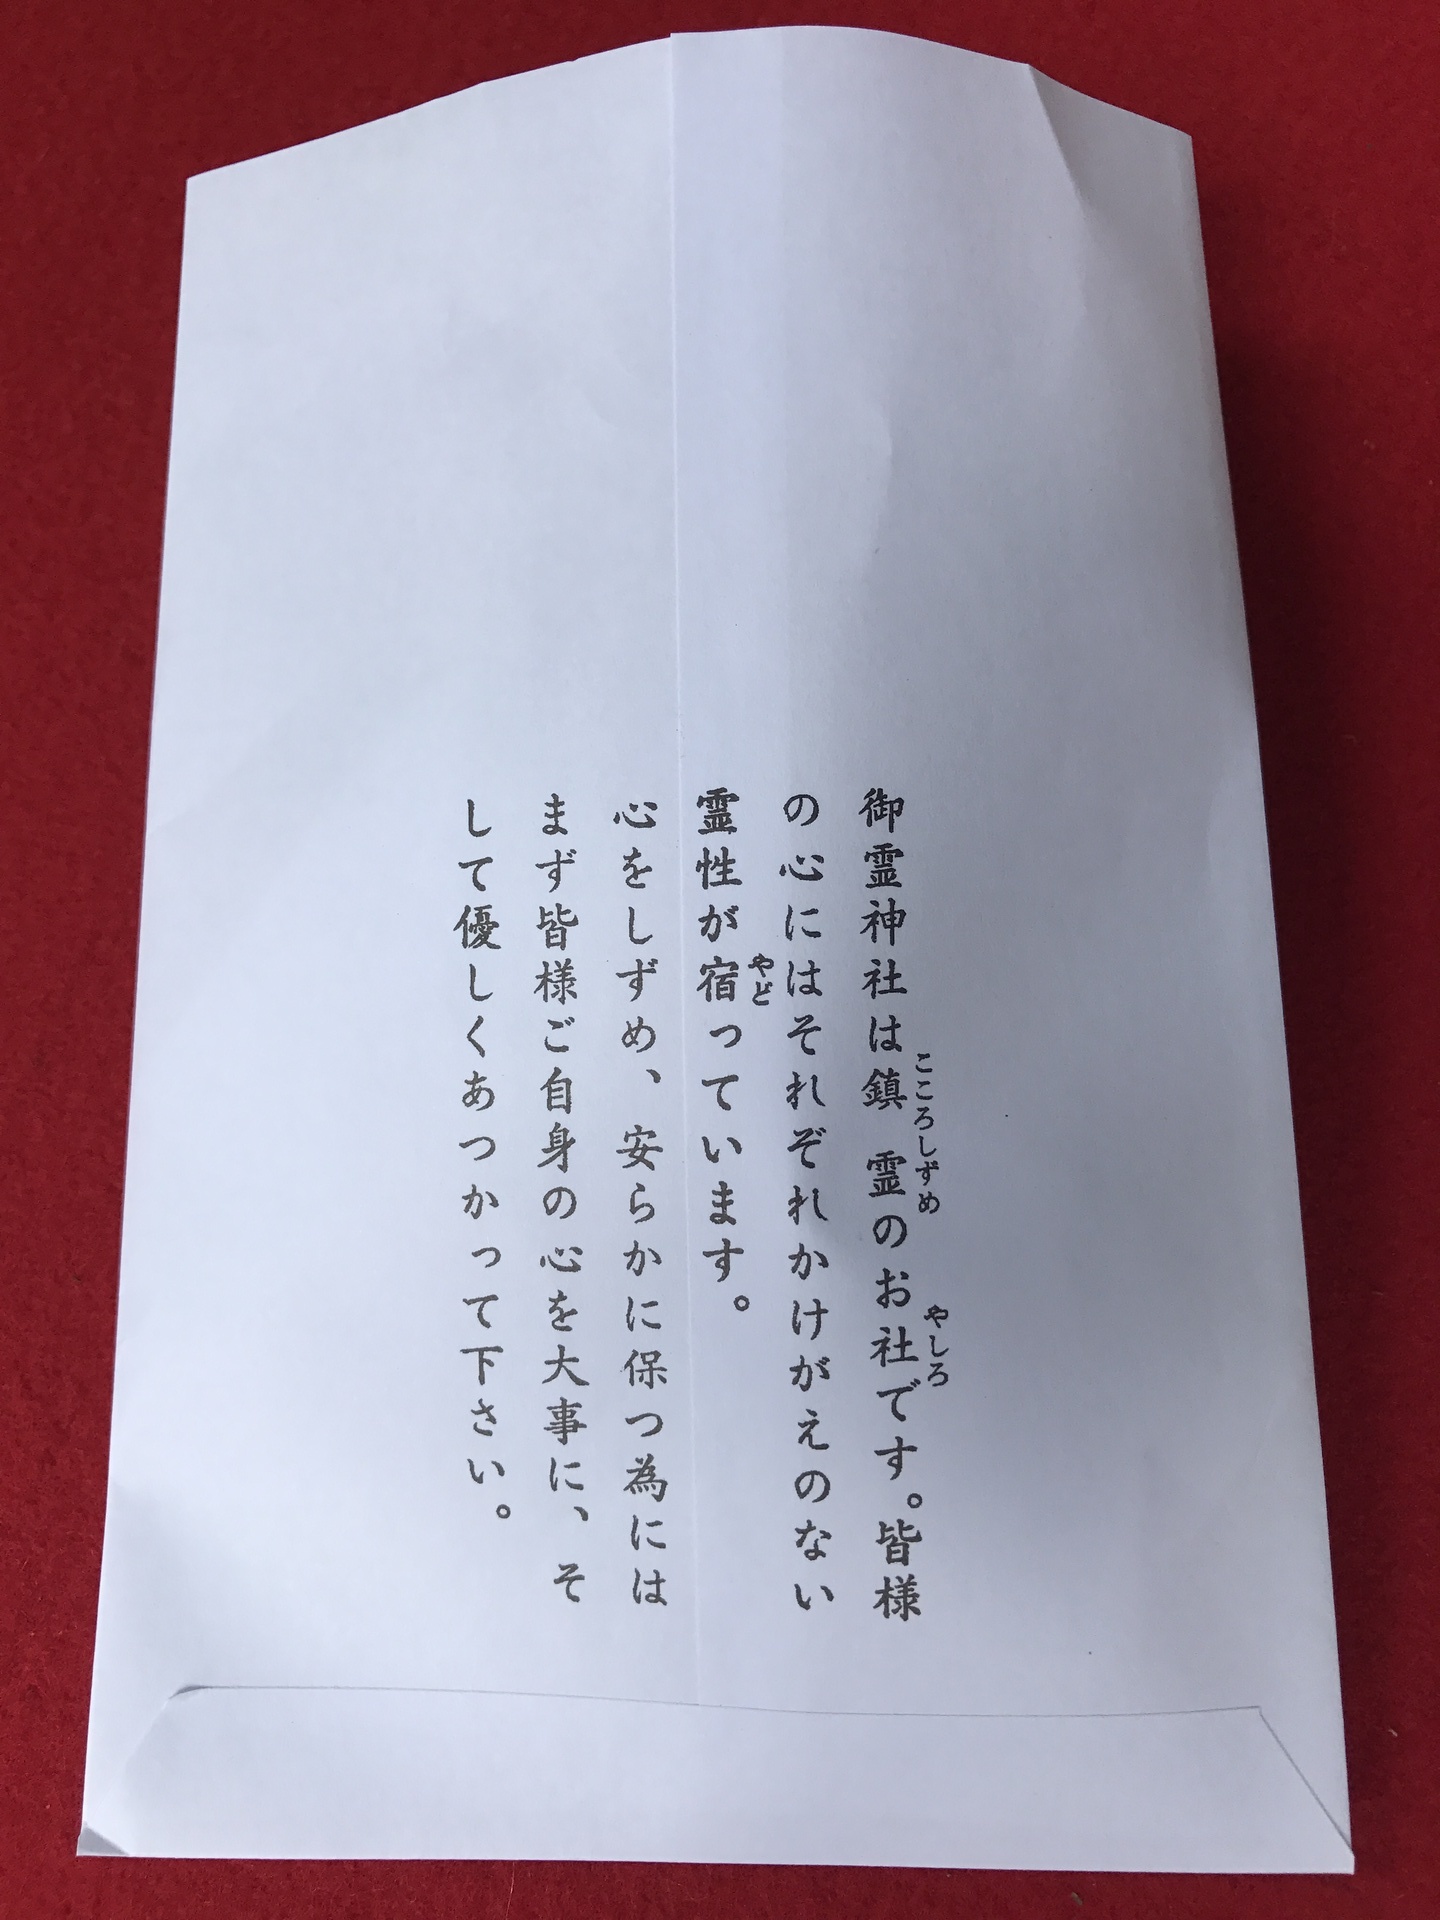 御霊神社は鎮霊のお社です。皆様
の心にはそれぞれかけがえのない
霊性が宿っています。
心をしずめ、安らかに保つ為には
まず皆様ご自身の心を大事に、そ
して優しくあつかって下さい。
こころしずめ
やしろ
やど